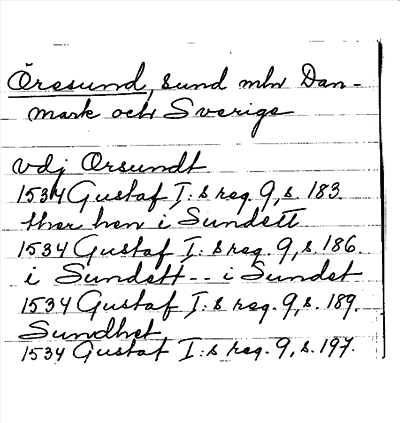 Öresund, sund mln Dan-
mark och Sverige
vdj Orsundt
1534 Gustaf I:s reg. 9, s. 183.
ther hen i Sundett
1534 Gustaf I:s reg. 9, s. 186.
i Sundett -- i Sundet
1534 Gustaf I:s reg. 9, s. 189.
Sundhet
1534 Gustaf I:s reg. 9, s. 197.